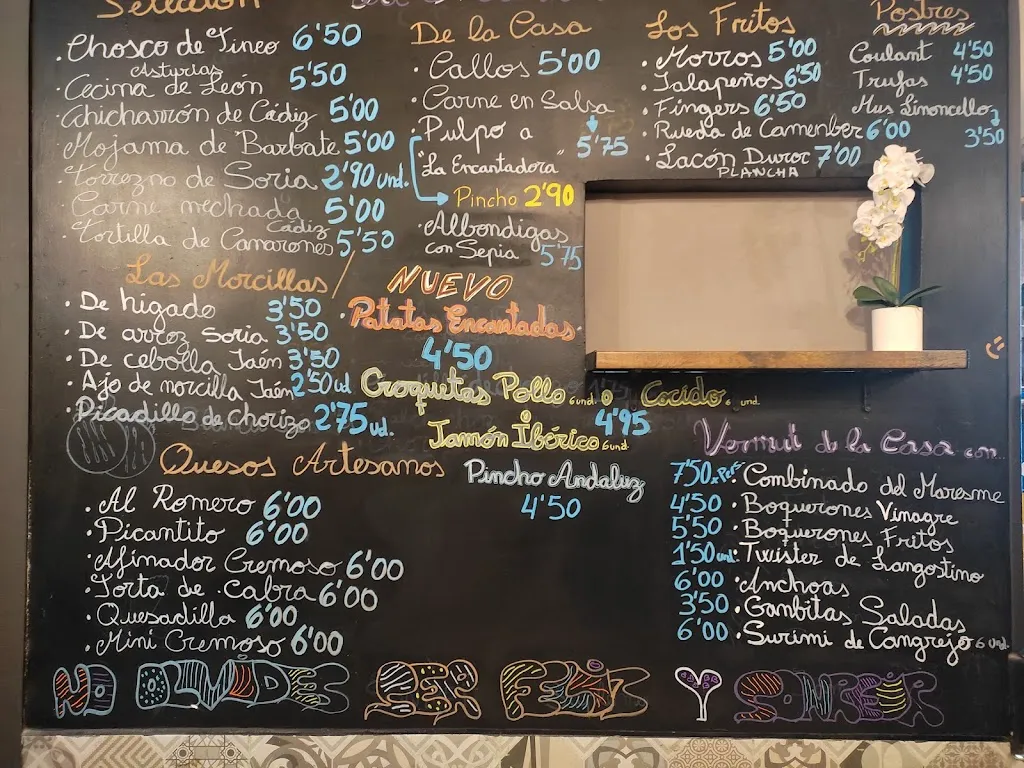 Selección
Chosco de Tineo 6'50
Asturias
Cecina de León 5'50
Chicharrón de Cádiz 5'00
Mojama de Barbate 5'00
Torrezno de Soria 2'90 und.
Carne mechada 5'00
Cádiz
Tortilla de Camarones 5'50
Las Morcillas
De higado 3'50
De arroz Soria 3'50
De cebolla Jaén 3'50
Ajo de morcilla Jaén 2'50 ud
Picadillo de Chorizo 2'75 ud.
Quesos Artesanos
Al Romero 6'00
Picantito 6'00
Afinador Cremoso 6'00
Torta de Cabra 6'00
Quesadilla 6'00
Mini Cremoso 6'00
De la Casa
Callos 5'00
Carne en Salsa
Pulpo a 5'75
"La Encantadora"
Pincho 2'90
Albondigas
con Sepia 5'75
NUEVO
Patatas Encantadas
4'50
Croquetas Pollo 6 und. o Cocido 6 und.
4'95
Jamón Ibérico 6 und
Pincho Andaluz
4'50
Los Fritos
Morros 5'00
Jalapeños 6'50
Fingers 6'50
Rueda de Camenber 6'00
Lacón Duroc 7'00
PLANCHA
Postres
Coulant 4'50
Trufas 4'50
Mus Limoncello
3'50
Vermut d la Casa con...
7'50 x Per. Combinado del Maresme
4'50 Boquerones Vinagre
5'50 Boquerones Fritos
1'50 und: Twister de Langostino
6'00 Anchoas
3'50 Gambitas Saladas
6'00 Surimi de Cangrejo 6 und.
NO OLVIDES SER FELIZ Y SONREIR